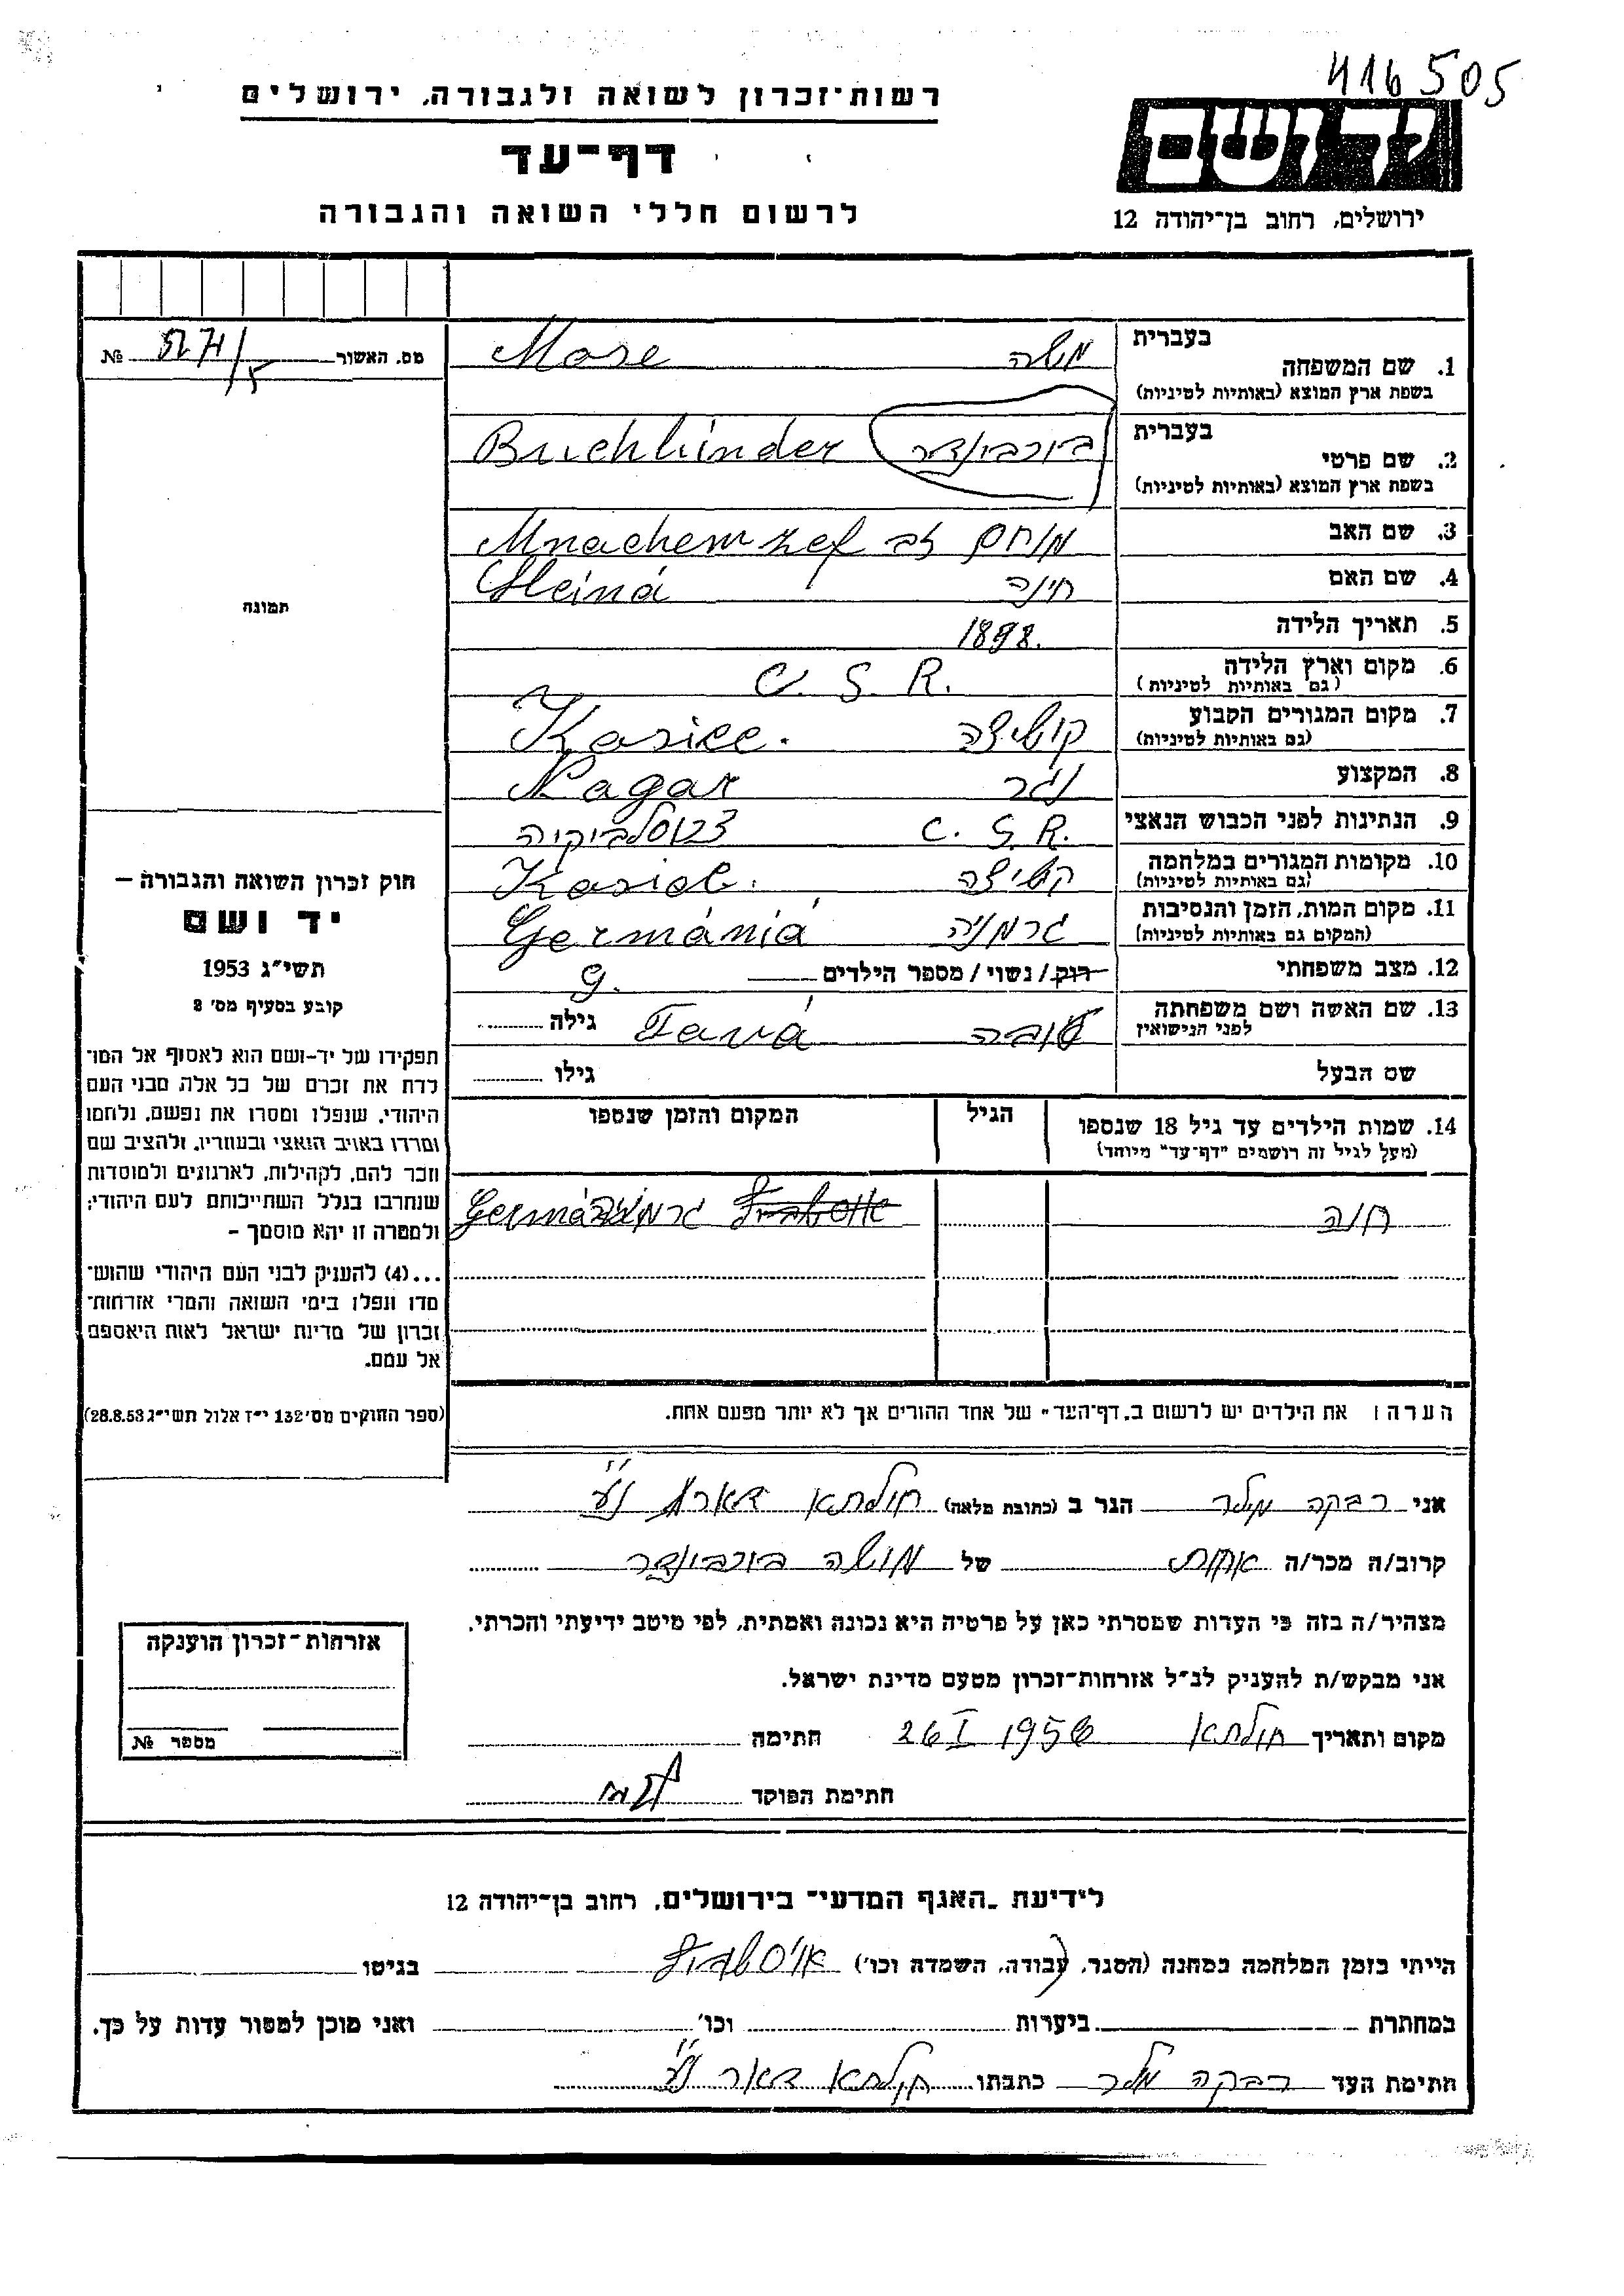 416505
רשות־זכרון לשואה ולגבורה, ירושלים
דף־עד
לרשום חללי השואה והגבורה
ידושם
ירושלים, רחוב בן־יהודה 12
מס. האשור № 5/
בעברית
1. שם המשפחה
בשפת ארץ המוצא (באותיות לטיניות)
משה Mose
בעברית
2. שם פרטי
בשפת ארץ המוצא (באותיות לטיניות)
בוכבינדר Buchbinder
3. שם האב מנחם זב Mnachem zef
4. שם האם חינה Heiná
5. תאריך הלידה 1898.
6. מקום וארץ הלידה C. S. R.
(גם באותיות לטיניות)
7. מקום המגורים הקבוע קושיצה Kasice.
(גם באותיות לטיניות)
8. המקצוע נגר Nagar
9. הנתינות לפני הכבוש הנאצי C. S. R. צכוסלביקיה
10. מקומות המגורים במלחמה קשיצה
(גם באותיות לטיניות)
11. מקום המות, הזמן והנסיבות גרמניה Germániá
(המקום גם באותיות לטיניות)
12. מצב משפחתי רווק / נשוי / מספר הילדים 9.
13. שם האשה ושם משפחתה טובה Tavá גילה
לפני הנישואין
שם הבעל גילו
14. שמות הילדים עד גיל 18 שנספו הגיל המקום והזמן שנספו
(מעל לגיל זה רושמים "דף־עד" מיוחד)
חנה
הערה: את הילדים יש לרשום ב„דף־העד" של אחד ההורים אך לא יותר מפעם אחת.
תמונה
חוק זכרון השואה והגבורה —
יד ושם
תשי"ג 1953
קובע בסעיף מס' 2
תפקידו של יד-ושם הוא לאסוף אל המו־
לדת את זכרם של כל אלה מבני העם
היהודי, שנפלו ומסרו את נפשם, נלחמו
ומרדו באויב הנאצי ובעוזריו, ולהציב שם
וזכר להם, לקהילות, לארגונים ולמוסדות
שנחרבו בגלל השתייכותם לעם היהודי;
ולמטרה זו יהא מוסמך —
...(4) להעניק לבני העם היהודי שהוש־
מדו ונפלו בימי השואה והמרי אזרחות־
זכרון של מדינת ישראל לאות היאספם
אל עמם.
(ספר החוקים מס' 132 י"ז אלול תשי"ג 28.8.53)
אני רבקה מילר הגר ב (כתובת מלאה) חולתא דאר נע
קרוב/ה מכר/ה אחות של מושה בוכבינדר
מצהיר/ה בזה כי העדות שמסרתי כאן על פרטיה היא נכונה ואמתית, לפי מיטב ידיעתי והכרתי.
אני מבקש/ת להעניק לנ"ל אזרחות־זכרון מטעם מדינת ישראל.
מקום ותאריך חולתא 26 I 1956 חתימה
חתימת הפוקד
אזרחות־זכרון הוענקה
מספר №
לידיעת „האגף המדעי" בירושלים, רחוב בן־יהודה 12
הייתי בזמן המלחמה במחנה (הסגר, עבודה, השמדה וכו') בגיטו
במחתרת ביערות וכו' ואני מוכן למסור עדות על כך.
חתימת העד רבקה מילר כתבתו חולתא דאר נע